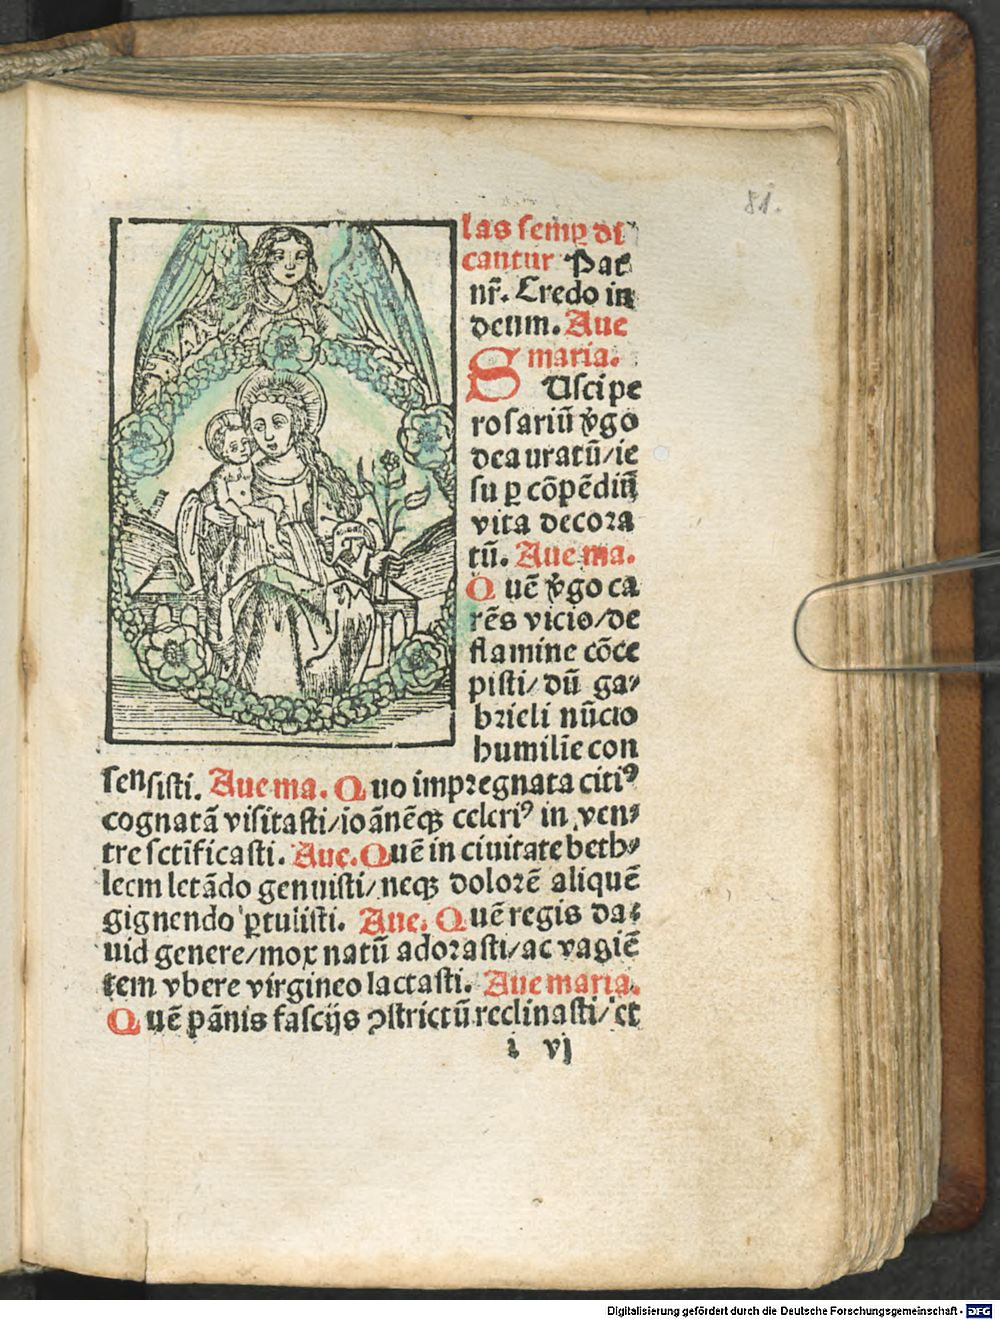 81.
las semꝑ di
cantur Pat̄
nr̄. Credo in
deum. Aue
maria.
SUscipe
rosariū v̓go
deauratū/ie
su ꝑ cōpēdiū
vita decora
tū. Aue ma.
Quē v̓go ca
rēs vicio/de
flamine cōce
pisti/dū ga⸗
brieli nūcio
humilīe con
sensisti. Aue ma. Quo impregnata citiꝰ
cognatā visitasti/ioānēqꝫ celeriꝰ in ven⸗
tre sctīficasti. Aue. Quē in ciuitate beth⸗
leem letādo genuisti/neqꝫ dolorē aliquē
gignendo ꝑtulisti. Aue. Quē regis da⸗
uid genere/mox natū adorasti/ac vagiē
tem vbere virgineo lactasti. Aue maria.
Quē pānis fascijs ꝯstrictū reclinasti/et
i vj
Digitalisierung gefördert durch die Deutsche Forschungsgemeinschaft - DFG